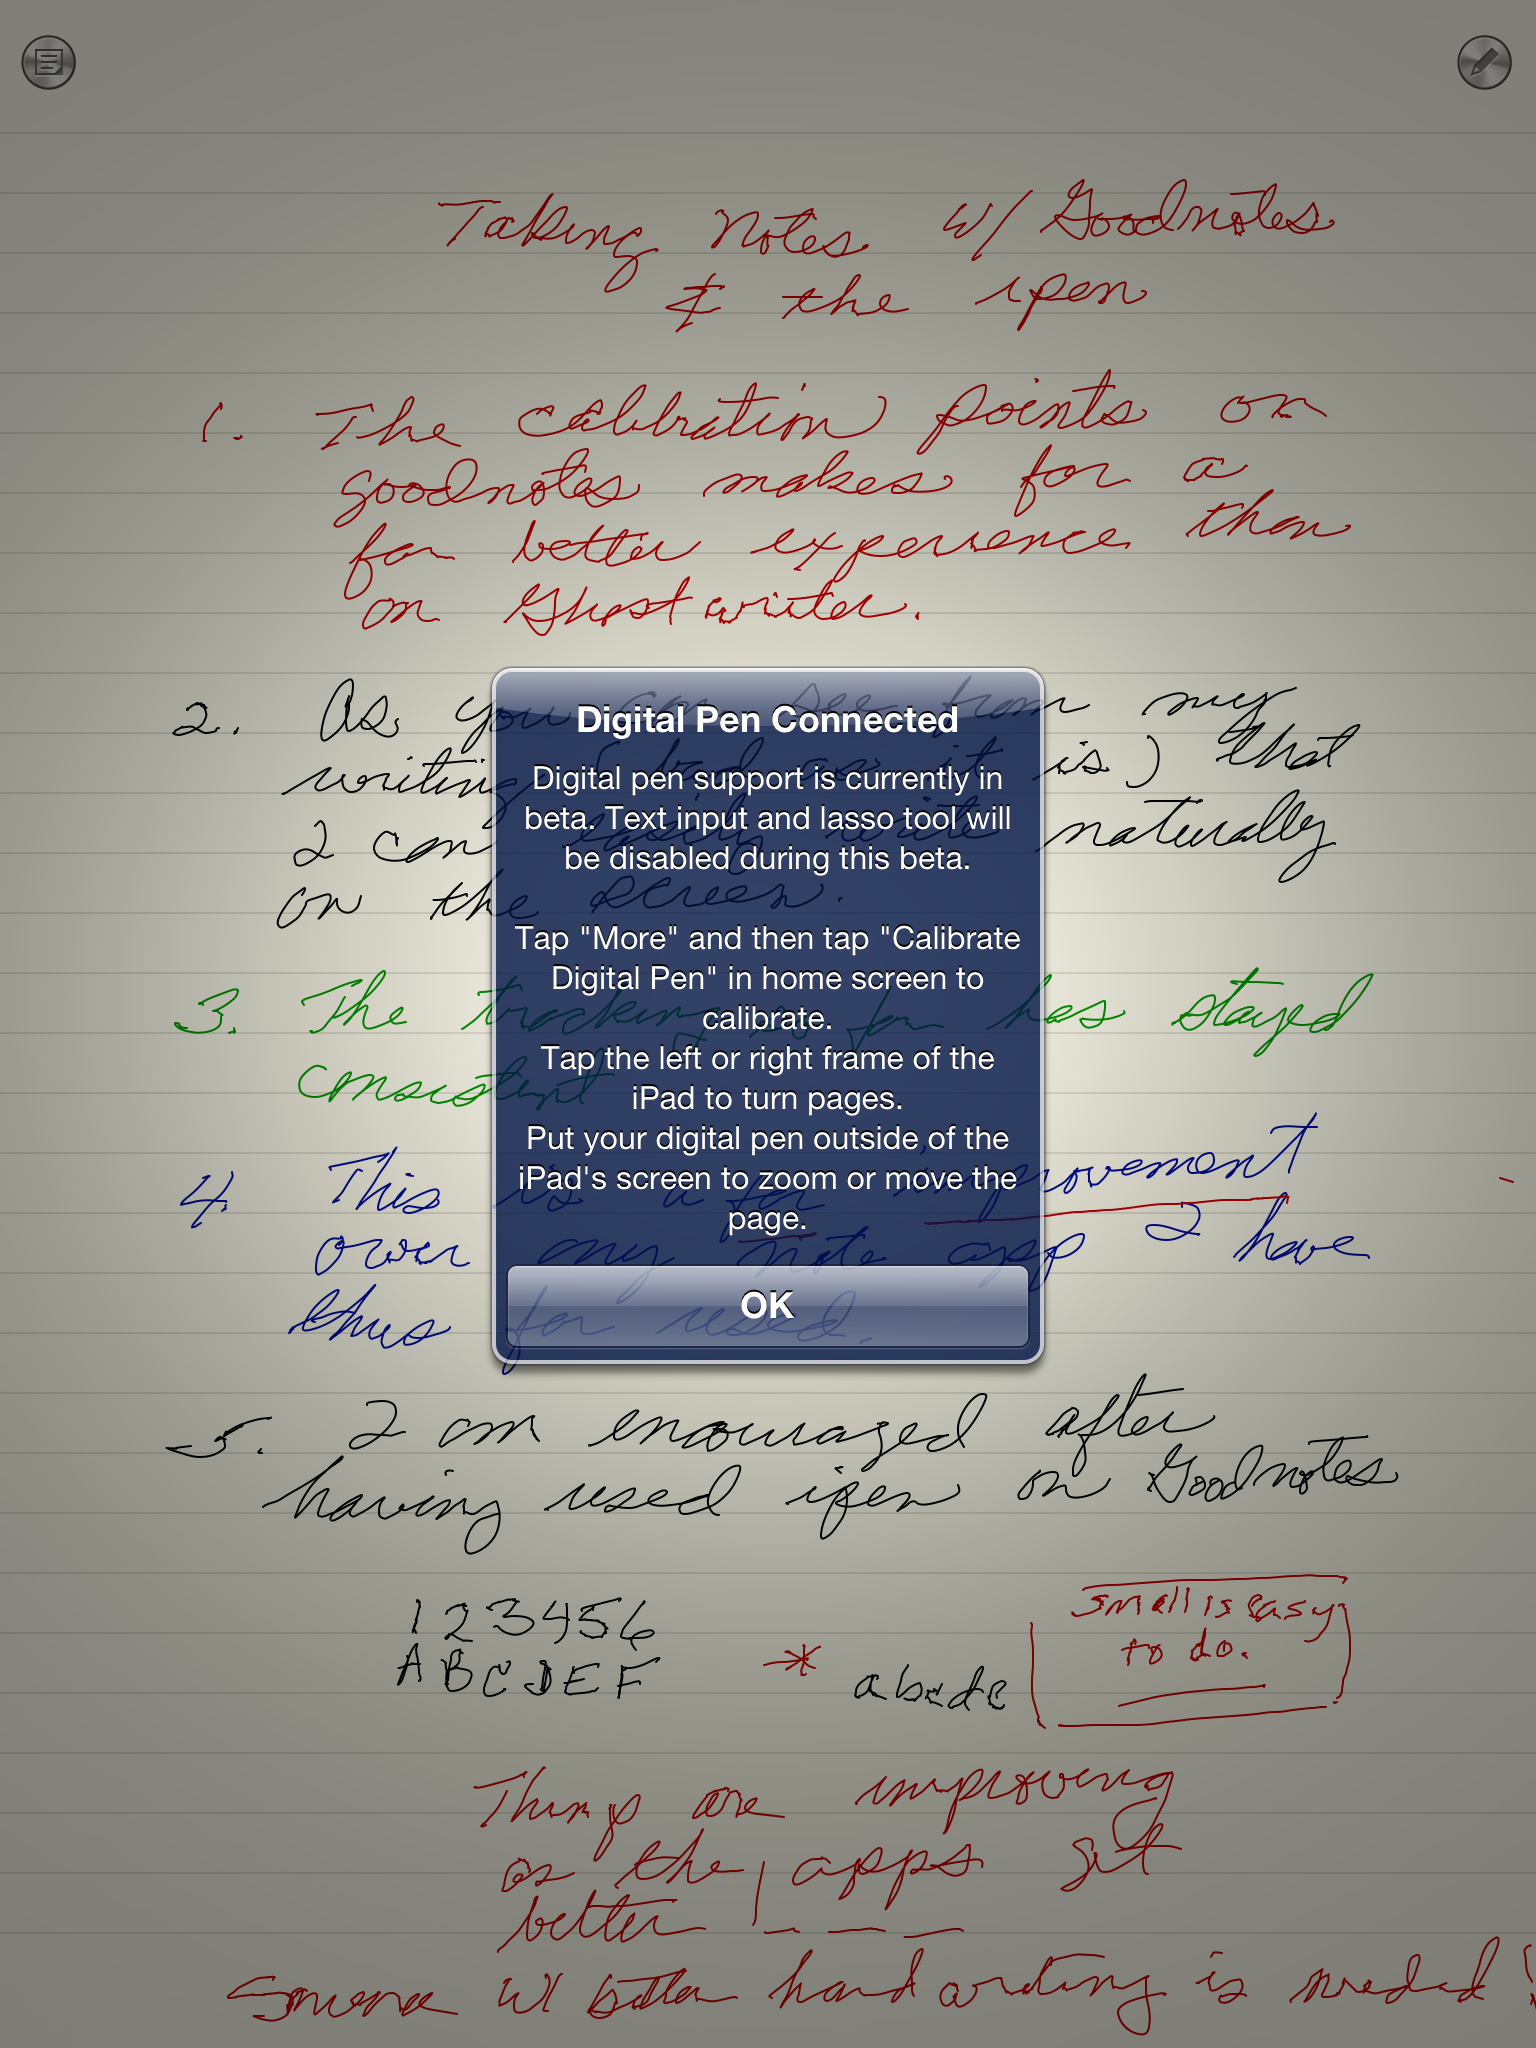 Taking Notes w/ Goodnotes
& the ipen
1. The calibration points on
goodnotes makes for a
far better experience than
on Ghostwriter.
2. As you can see from my
writing (bad as it is) that
I can easily write naturally
on the screen.
3. The tracking so far has stayed
consistent
4. This is a far improvement
over any note app I have
thus far used.
Digital Pen Connected
Digital pen support is currently in
beta. Text input and lasso tool will
be disabled during this beta.
Tap "More" and then tap "Calibrate
Digital Pen" in home screen to
calibrate.
Tap the left or right frame of the
iPad to turn pages.
Put your digital pen outside of the
iPad's screen to zoom or move the
page.
OK
5. I am encouraged after
having used ipen on Goodnotes
1 2 3 4 5 6
A B C D E F
* abcde
Small is easy
to do.
Things are improving
as the apps get
better
Someone w/ better handwriting is needed!